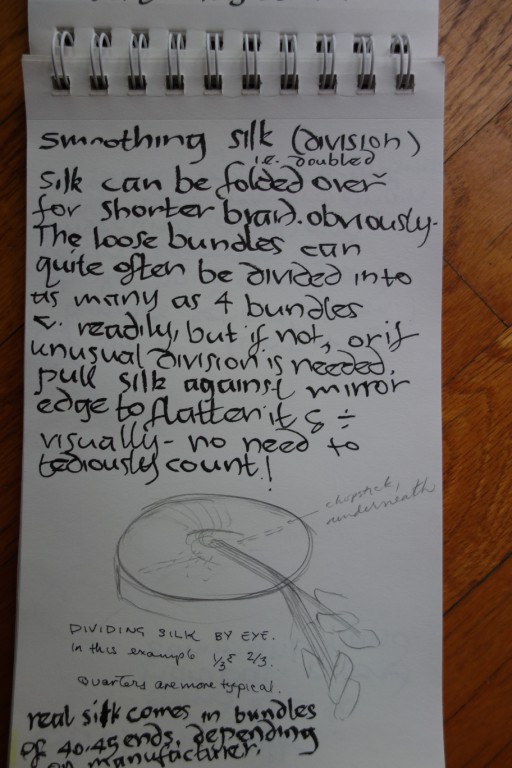 smoothing silk (division)
i.e. doubled
silk can be folded over
for shorter braid. obviously.
The loose bundles can
quite often be divided into
as many as 4 bundles
v. readily, but if not, or if
unusual division is needed,
pull silk against mirror
edge to flatten it & ÷
visually - no need to
tediously count!
chopstick,
underneath
DIVIDING SILK BY EYE.
in this example 1/3 & 2/3.
Quarters are more typical.
real silk comes in bundles
of 40-45 ends, depending
on manufacturer.